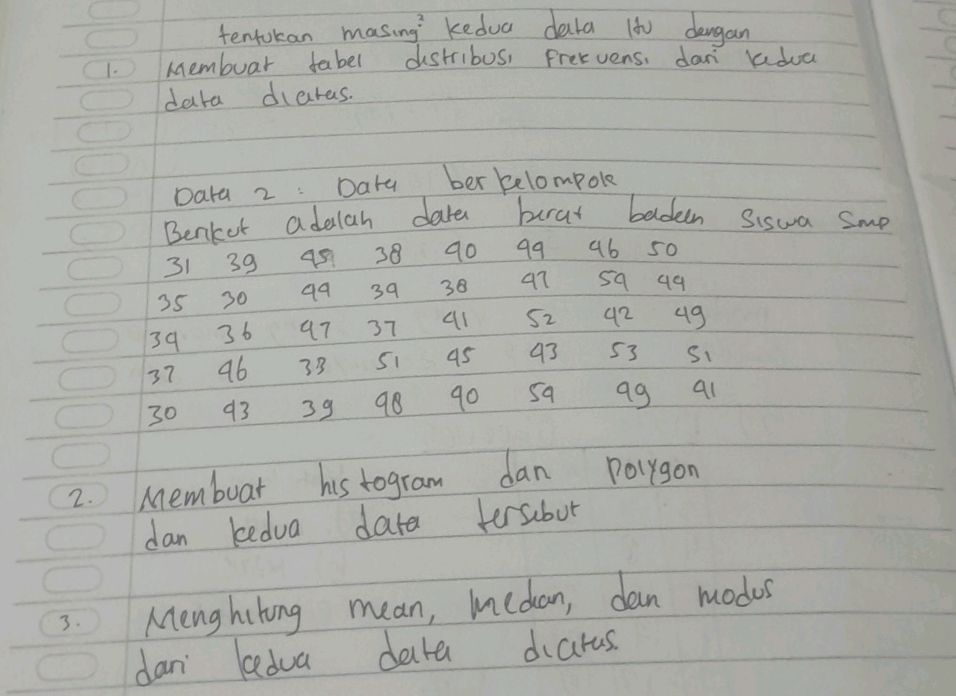 tentukan masing² kedua data itu dengan
1. Membuat tabel distribusi frekuensi dari kedua
data diatas.
Data 2 : Data berkelompok
Berikut adalah data berat badan siswa smp
31 39 45 38 40 44 46 50
35 30 44 39 38 47 54 49
34 36 47 37 41 52 42 49
37 46 38 51 45 43 53 51
30 43 39 48 40 54 49 41
2. Membuat histogram dan polygon
dan kedua data tersebut
3. Menghitung mean, median, dan modus
dari kedua data diatas.